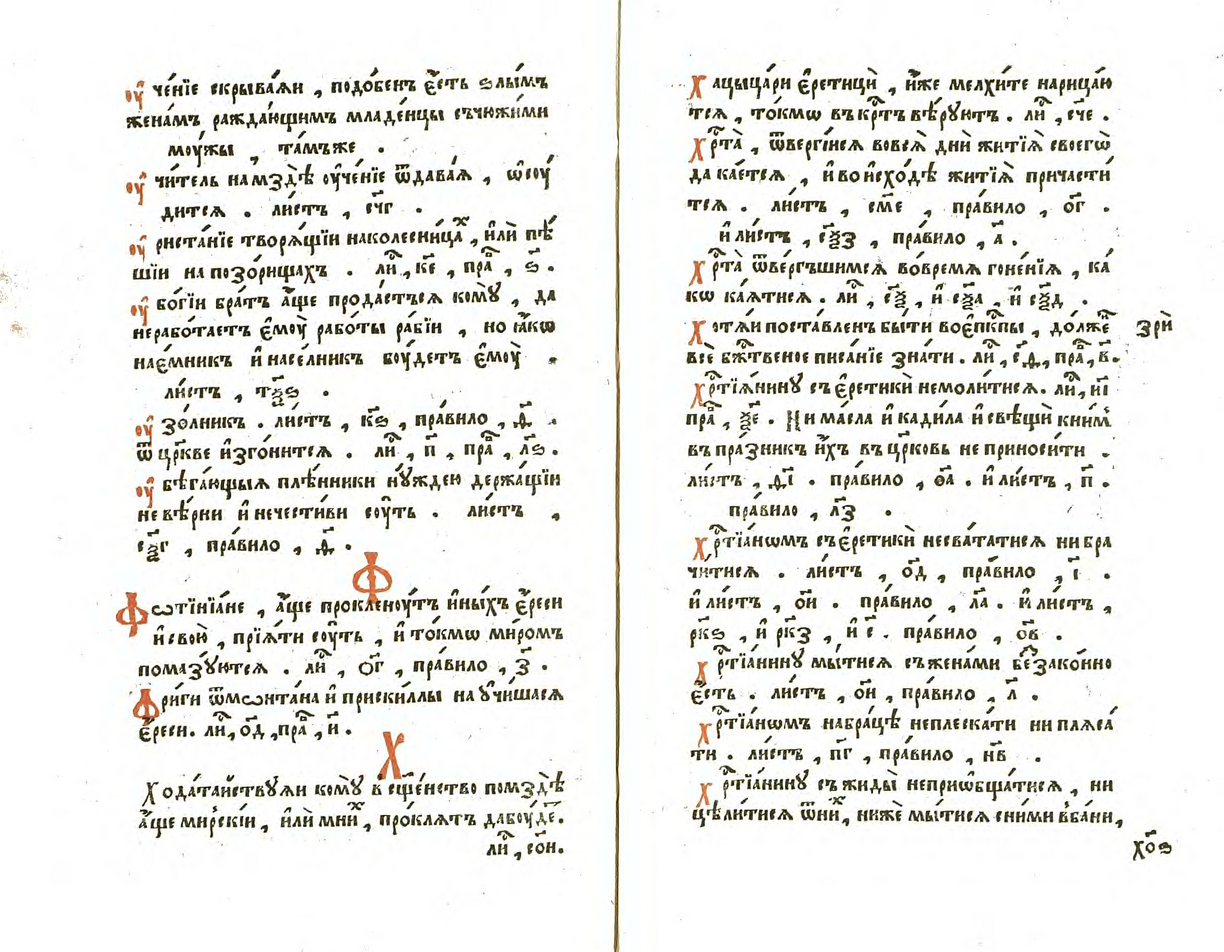 оу҆че́нїе скрыва́ѧи , подо́бенъ є҆́сть ѕлы́мъ
жена́мъ ражда́ющимъ младе́нцы съчюжи́ми
моу́жы , та́мъже .
оу҆чи́тель намздѣ̀ оу҆че́нїе ѿдава́ѧ , ѡ҆соу́
дитсѧ . ли́стъ , сч҃г .
оу҆риста́нїе творѧ́щїи наколесни́цаⷯ , и҆лѝ пѣ́
шїи на позо́рищахъ . лиⷭ҇ , к҃е , праⷡ҇ , ѕ҃ .
оу҆бо́гїи бра́тъ а҆́ще прода́стъсѧ комꙋ̀ , да
нерабо́таетъ є҆моу̀ рабо́ты ра́бїи , но ꙗ҆́кѡ
нае́мникъ и҆ насе́лникъ боу́детъ є҆моу̀ .
ли́стъ , тѯ҃ѕ .
оу҆зо́лникъ . ли́стъ , к҃ѕ , пра́вило , д҃ .
ѿ цр҃кве и҆згони́тсѧ . лиⷭ҇ , п҃ , праⷡ҇ , л҃ѕ .
оу҆бѣга́ющыѧ плѣ́нники нꙋ́ждею держа́щїи
невѣ́рни и҆ нечести́ви соу́ть . ли́стъ ,
сѯ҃г , пра́вило , д҃ .
Ф
Фѡтїнїа́не , а҆́ще проклену́тъ и҆ны́хъ є҆́реси
и҆ свою̀ , прїѧ́ти соу́ть , и҆ то́кмѡ ми́ромъ
помазꙋ́ютсѧ . лиⷭ҇ , о҃г , пра́вило , з҃ .
Фри́ги ѿмѡнта́на и҆ приски́ллы наꙋчи́шасѧ
є҆́реси . лиⷭ҇ , о҃д , праⷡ҇ , и҃ .
Х
Хода́тайствꙋѧи комꙋ̀ в сщ҃е́нство помздѣ̀
а҆́ще мирскі́и , и҆лѝ мниⷯ , про́клѧтъ дабоу́деⷮ .
лиⷭ҇ , со҃и .
Хацыца́ри є҆ретицѝ , и҆́же мелхи́те нарица́ю
тсѧ , то́кмѡ въкрⷭ҇тъ вѣ́рꙋютъ . лиⷭ҇ , сч҃е .
Хрⷭ҇та̀ , ѿве́ргїисѧ вовсѧ̀ дни̑ житїѧ̀ своегѡ̀
да ка́етсѧ , и҆ воисхо́дѣ житїѧ̀ причасти́
тсѧ . ли́стъ , см҃е , пра́вило , о҃г .
и҆ ли́стъ , сѯ҃з , пра́вило , а҃ .
Хрⷭ҇та̀ ѿве́ргъшимсѧ во́времѧ гоне́нїѧ , ка́
кѡ ка́ѧтисѧ . лиⷭ҇ , сѯ҃ , и҆ сѯ҃а , и҆ сѯ҃д .
Хотѧ́и поста́вленъ бы́ти воепⷭ҇кпы , до́лжеⷩ҇
зрѝ
всѐ бжⷭ҇твеное писа́нїе зна́ти . лиⷭ҇ , с҃д , праⷡ҇ , в҃ .
Хрⷭ҇тїѧ́нинꙋ съ є҆ретикѝ немоли́тисѧ . лиⷭ҇ , и҃і
праⷡ҇ , ѯ҃е . Ни ма́сла и҆ кади́ла и҆ свѣщѝ кни́мⷨ
въ пра́зникъ и҆́хъ въ цр҃ковь не приноси́ти .
ли́стъ , д҃і . пра́вило , ѳ҃а . и҆ ли́стъ , п҃ .
пра́вило , л҃з .
Хрⷭ҇тїа́нѡмъ съ є҆ретикѝ несва́татисѧ ни бра́
читисѧ . ли́стъ , о҃д , пра́вило , і҃ .
и҆ ли́стъ , о҃и . пра́вило , л҃а . и҆ ли́стъ ,
рк҃ѕ , и҆ рк҃з , и҆ с҃ . пра́вило , о҃в .
Хрⷭ҇тїа́нинꙋ мы́тисѧ съ жена́ми беⷥ҇зако́нно
є҆́сть . ли́стъ , о҃и , пра́вило , л҃ .
Хрⷭ҇тїа́нѡмъ набра́цѣ неплеска́ти ни плѧса́
ти . ли́стъ , п҃г , пра́вило , н҃в .
Хрⷭ҇тїа́нинꙋ съ жиды̀ неприѡбща́тисѧ , ни
цѣли́тисѧ ѿ ниⷯ , ниже́ мы́тисѧ сни́ми вба́ни ,
хо҃ѕ